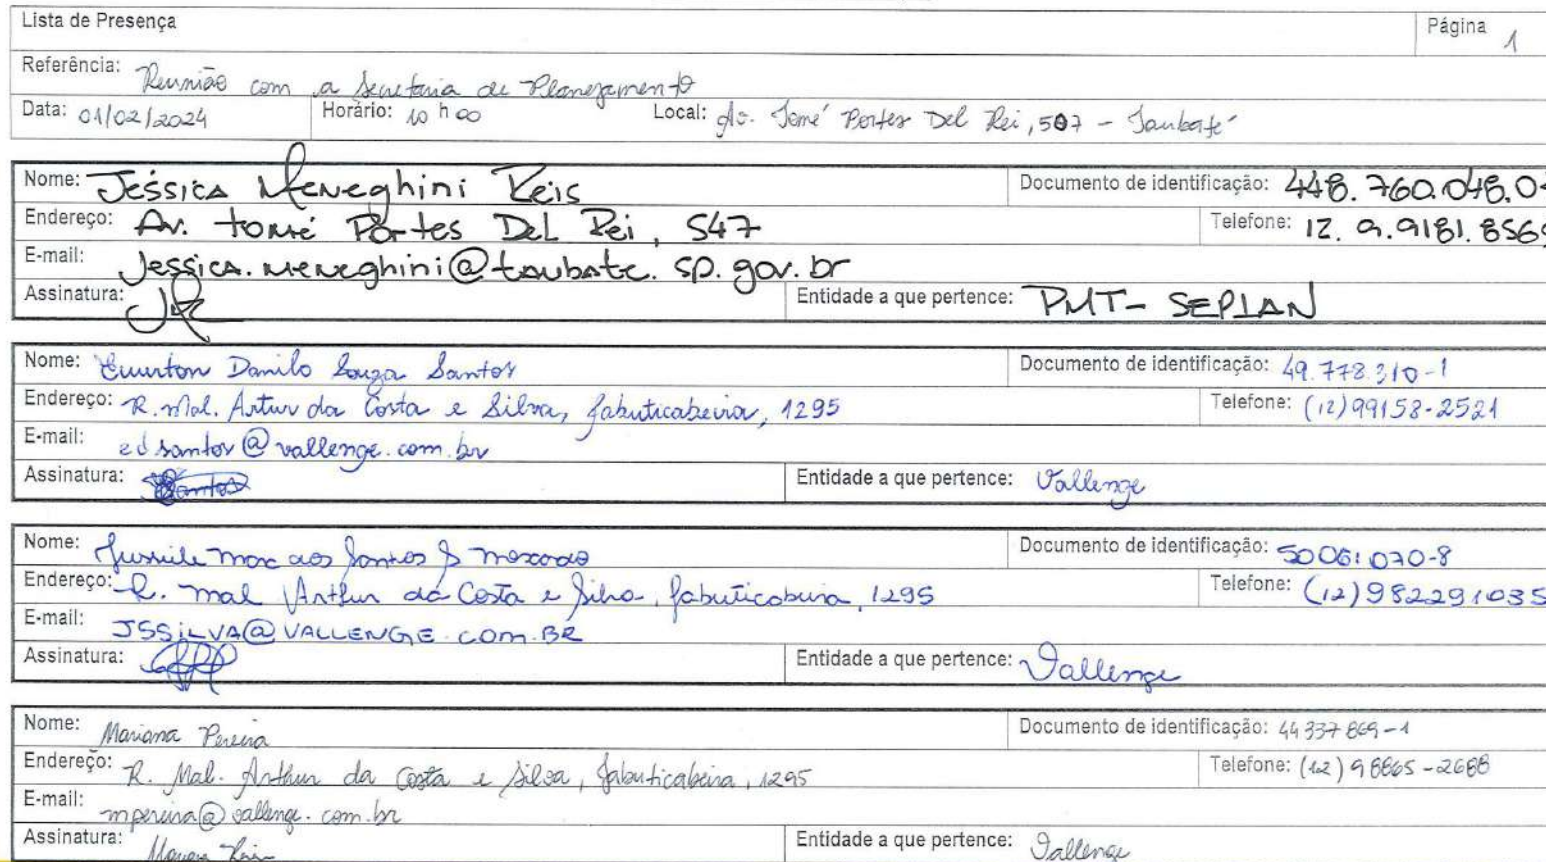 Lista de Presença Página 1
Referência: Reunião com a Secretaria de Planejamento
Data: 01/02/2024 Horário: 10 h 00 Local: Av. Tomé Portes Del Rei, 507 - Taubaté
Nome: Jéssica Meneghini Reis Documento de identificação: 448.760.048.0
Endereço: Av. tomé Portes Del Rei, 547 Telefone: 12. 9.9181.856
E-mail: Jessica.meneghini@taubate.sp.gov.br
Assinatura: Entidade a que pertence: PMT- SEPLAN
Nome: Ewerton Danilo Souza Santos Documento de identificação: 49.778.310-1
Endereço: R. Mal. Artur da Costa e Silva, Jabuticabeira, 1295 Telefone: (12)99158-2521
E-mail: edsantos@vallenge.com.br
Assinatura: Santos Entidade a que pertence: Vallenge
Nome: dos Santos Documento de identificação: 50061070-8
Endereço: R. mal Arthur da Costa e Silva, Jabuticabeira, 1295 Telefone: (12)982291035
E-mail: JSSILVA@VALLENGE.COM.BR
Assinatura: Entidade a que pertence: Vallenge
Nome: Mariana Pereira Documento de identificação: 44337869-1
Endereço: R. Mal. Arthur da Costa e Silva, Jabuticabeira, 1295 Telefone: (12) 98865-2688
E-mail: mpereira@vallenge.com.br
Assinatura: Entidade a que pertence: Vallenge